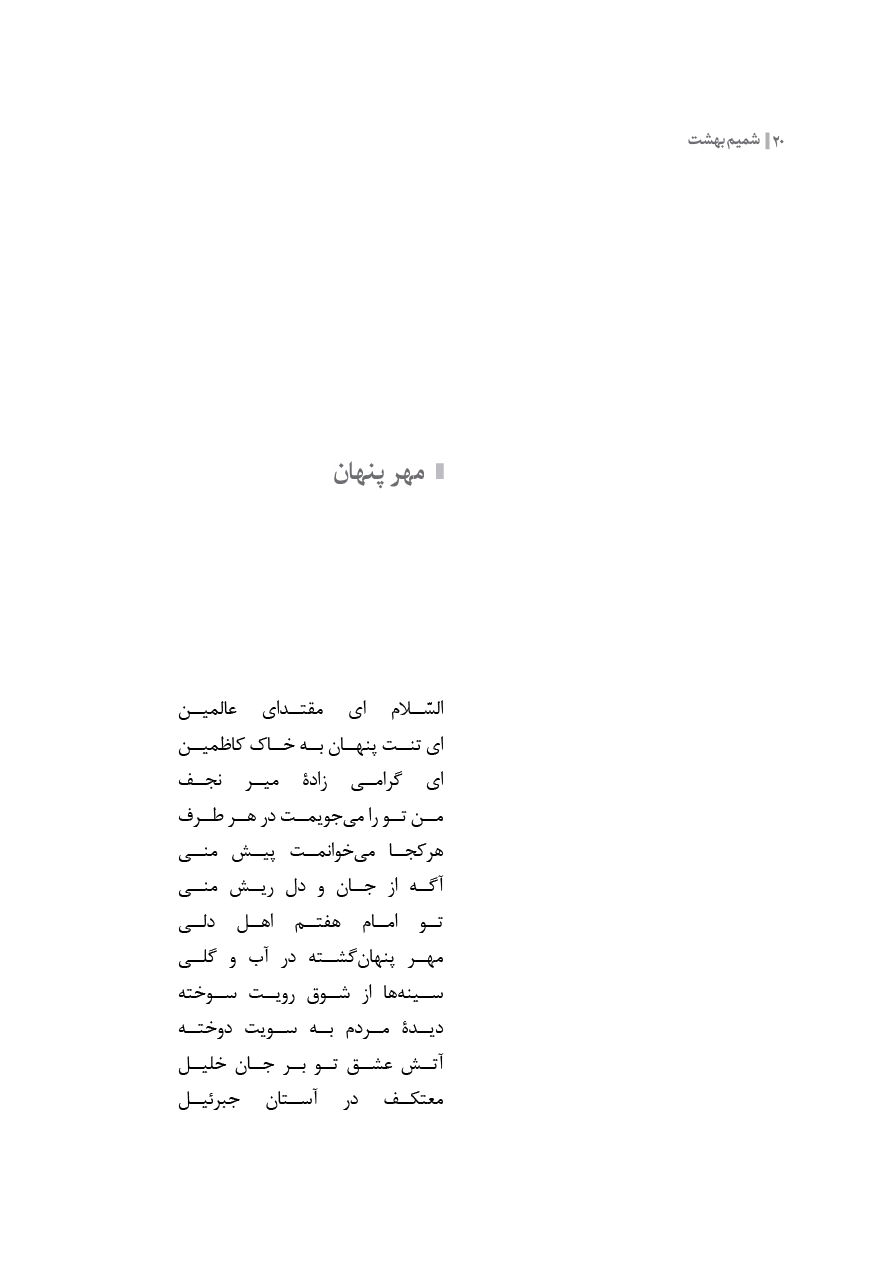 ۲۰ | شمیم بهشت
مهر پنهان
السّلام ای مقتدای عالمین
ای تنت پنهان به خاک کاظمین
ای گرامی زادهٔ میر نجف
من تو را می‌جویمت در هر طرف
هرکجا می‌خوانمت پیش منی
آگه از جان و دل ریش منی
تو امام هفتم اهل دلی
مهر پنهان‌گشته در آب و گلی
سینه‌ها از شوق رویت سوخته
دیدهٔ مردم به سویت دوخته
آتش عشق تو بر جان خلیل
معتکف در آستان جبرئیل